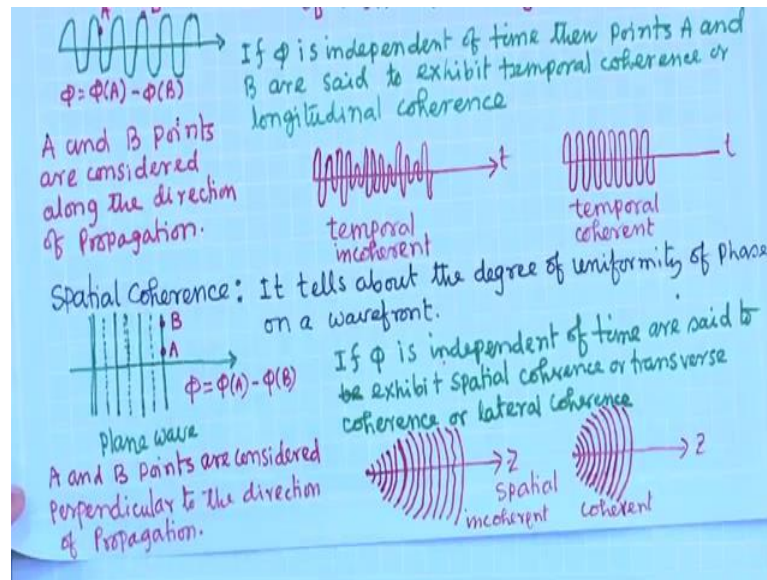 A
If φ is independent of time then Points A and
B are said to exhibit temporal coherence or
longitudinal coherence
φ = φ(A) - φ(B)
A and B Points
are considered
along the direction
of Propagation.
t
temporal
incoherent
t
temporal
coherent
Spatial Coherence: It tells about the degree of uniformity of phase
on a wavefront.
B
A
φ = φ(A) - φ(B)
Plane wave
If φ is independent of time are said to
be exhibit spatial coherence or transverse
coherence or lateral coherence
A and B Points are considered
Perpendicular to the direction
of Propagation.
Z
spatial
incoherent
Z
coherent